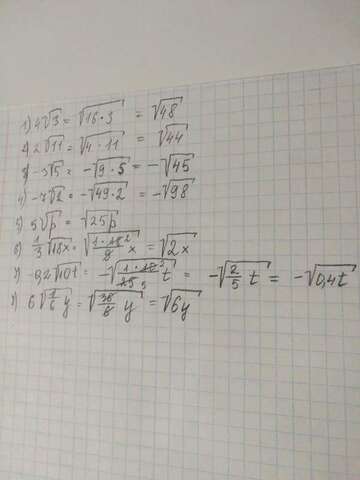 1) 4√3 = √16·3 = √48
2) 2√11 = √4·11 = √44
3) -3√5 = -√9·5 = -√45
4) -7√2 = -√49·2 = -√98
5) 5√p = √25p
6) 1/3 √18x = √(1·18²/9)x = √2x
7) -0,2√10t = -√(1·10²/25 5)t = -√2/5 t = -√0,4t
8) 6√1/6 y = √36/6 y = √6y